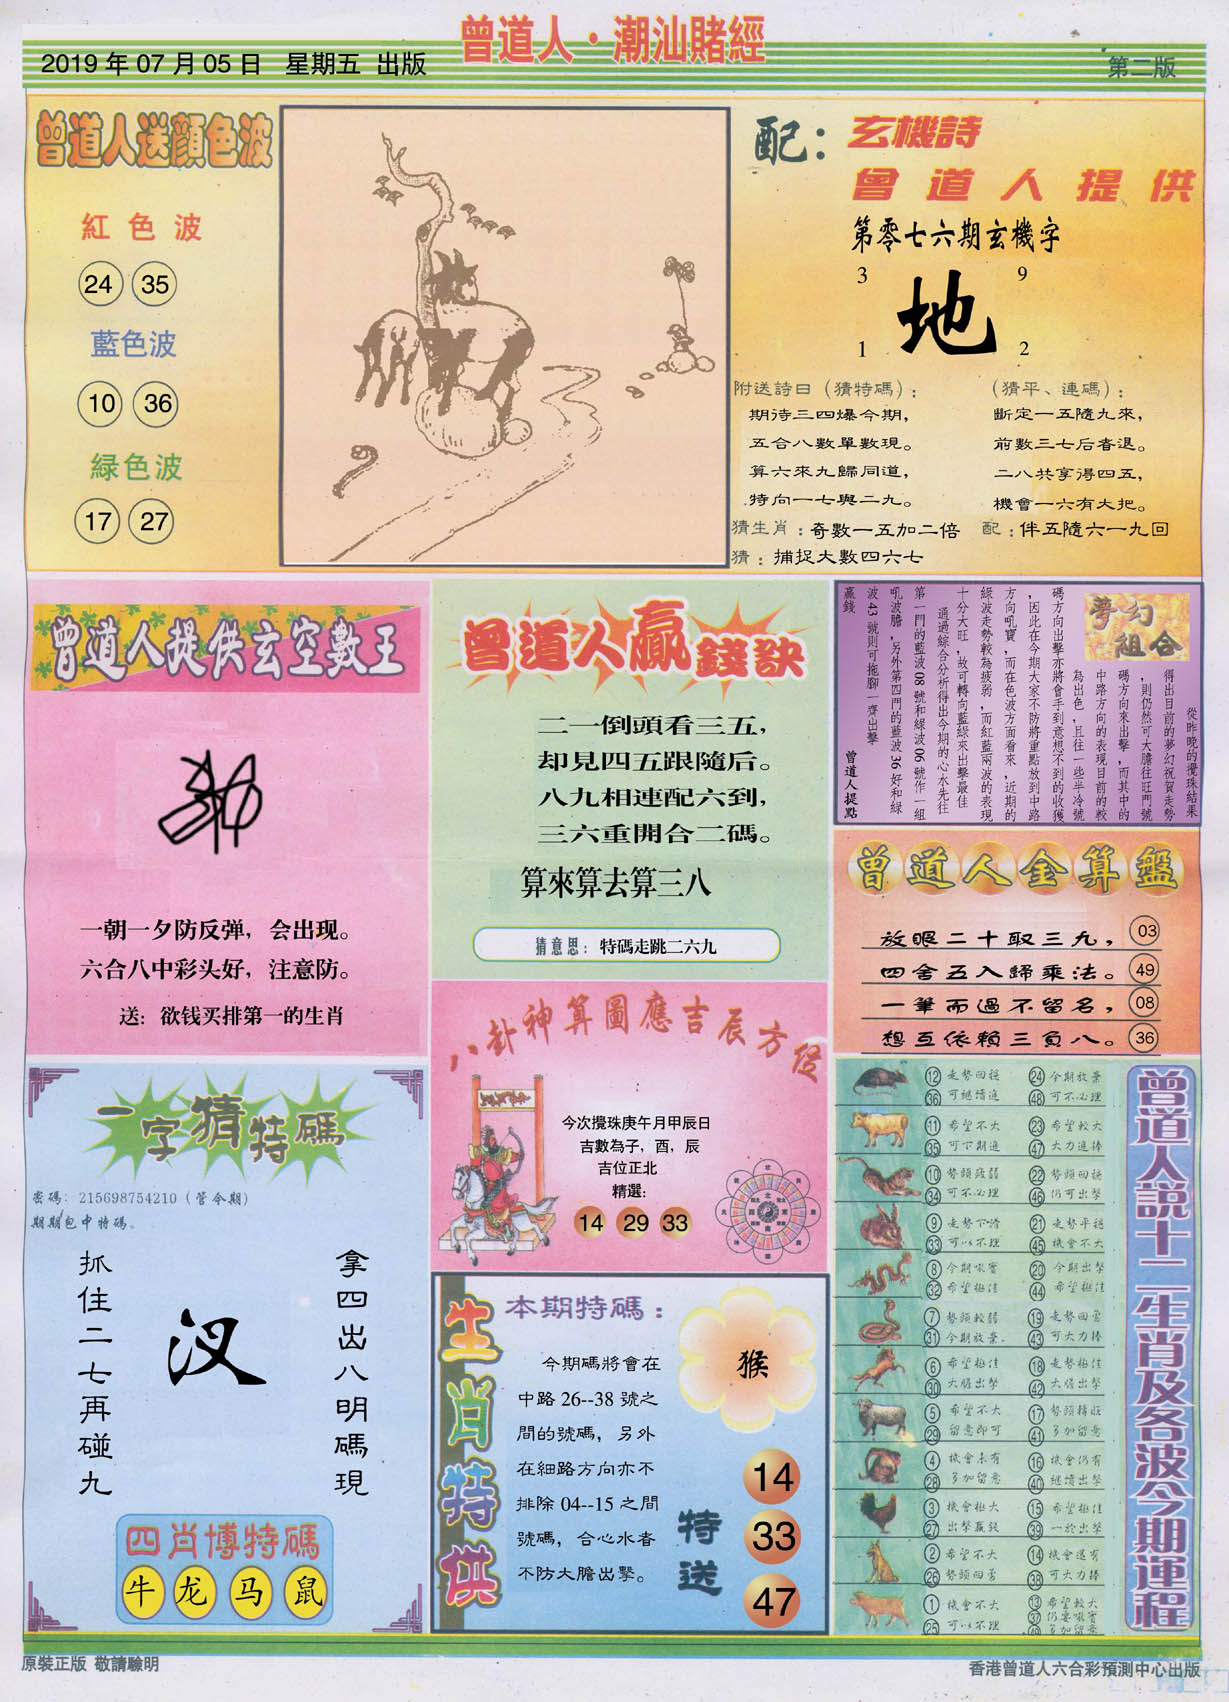 曾道人·潮汕賭經
2019 年 07 月 05 日 星期五 出版
第二版
曾道人送顏色波
紅色波
24 35
藍色波
10 36
緑色波
17 27
配：玄機詩
曾道人提供
第零七六期玄機字
3 9
地
1 2
附送詩曰（猜特碼）：
期待三四爆今期，
五合八數單數現。
算六來九歸同道，
特向一七與二九。
（猜平、連碼）：
斷定一五隨九來，
前數三七后春退。
二八共享得四五，
機會一六有大把。
猜生肖：奇數一五加二倍
配：伴五隨六一九回
猜：捕捉大數四六七
曾道人提供玄空數王
一朝一夕防反弹，会出现。
六合八中彩头好，注意防。
送：欲钱买排第一的生肖
曾道人贏錢訣
二一倒頭看三五，
却見四五跟隨后。
八九相連配六到，
三六重開合二碼。
算來算去算三八
猜意思：特碼走跳二六九
夢幻組合
從昨晚的攪珠結果
得出目前的夢幻祝賀走勢
，則仍然可大膽往旺門號
碼方向來出擊，而其中的
中路方向的表現目前的較
為出色，且往一些半冷號
碼方向出擊亦將會手到意想不到的收獲
，因此在今期大家不防將重點放到中路
方向吼寶，而在色波方面看來，近期的
綠波走勢較為疲弱，而紅藍兩波的表現
十分大旺，故可轉向藍綠來出擊最佳
通過綜合分析得出今期的心水先往
第一門的藍波 08 號和綠波 06 號作一組
吼波膽，另外第四門的藍波 36 好和綠
波 43 號則可拖腳一齊出擊
贏錢
曾道人提點
曾道人金算盤
放眼二十取三九， 03
四舍五入歸乘法。 49
一筆而過不留名， 08
想互依賴三負八。 36
八卦神算圖應吉辰方位
今次攪珠庚午月甲辰日
吉數為子，酉，辰
吉位正北
精選：
14 29 33
一字猜特碼
密碼：215698754210（管令期）
期期包中特碼。
拿四出八明碼現
汊
抓住二七再碰九
四肖博特碼
牛 龙 马 鼠
生肖特供
本期特碼：
今期碼將會在
中路 26--38 號之
間的號碼，另外
在細路方向亦不
排除 04--15 之間
號碼，合心水者
不防大膽出擊。
猴
特送
14
33
47
曾道人説十二生肖及各波今期運程
12 走勢回穩 24 今期放棄
36 可繼續進 48 可不必理
11 希望不大 23 希望較大
35 可下期進 47 大力進捧
10 勢頭疲弱 22 勢頭回穩
34 可不必理 46 仍可出擊
9 走勢下滑 21 走勢平穩
33 可以不理 45 機會不大
8 今期吼寶 20 今期出擊
32 希望極佳 44 希望極佳
7 勢頭較弱 19 走勢回勇
31 今期放棄 43 可大力捧
6 希望極佳 18 走勢極佳
30 大膽出擊 42 大膽出擊
5 希望不大 17 勢頭轉旺
29 留意即可 41 多加留意
4 機會未有 16 機會仍有
28 多加留意 40 繼續出擊
3 機會極大 15 希望極佳
27 出擊贏錢 39 一於出擊
2 希望不大 14 機會還有
26 勢頭回勇 38 可大力捧
1 機會不大 13 希望較大
25 可以不理 37 仍要吼寶
49 多加留意
原裝正版 敬請驗明
香港曾道人六合彩預測中心出版